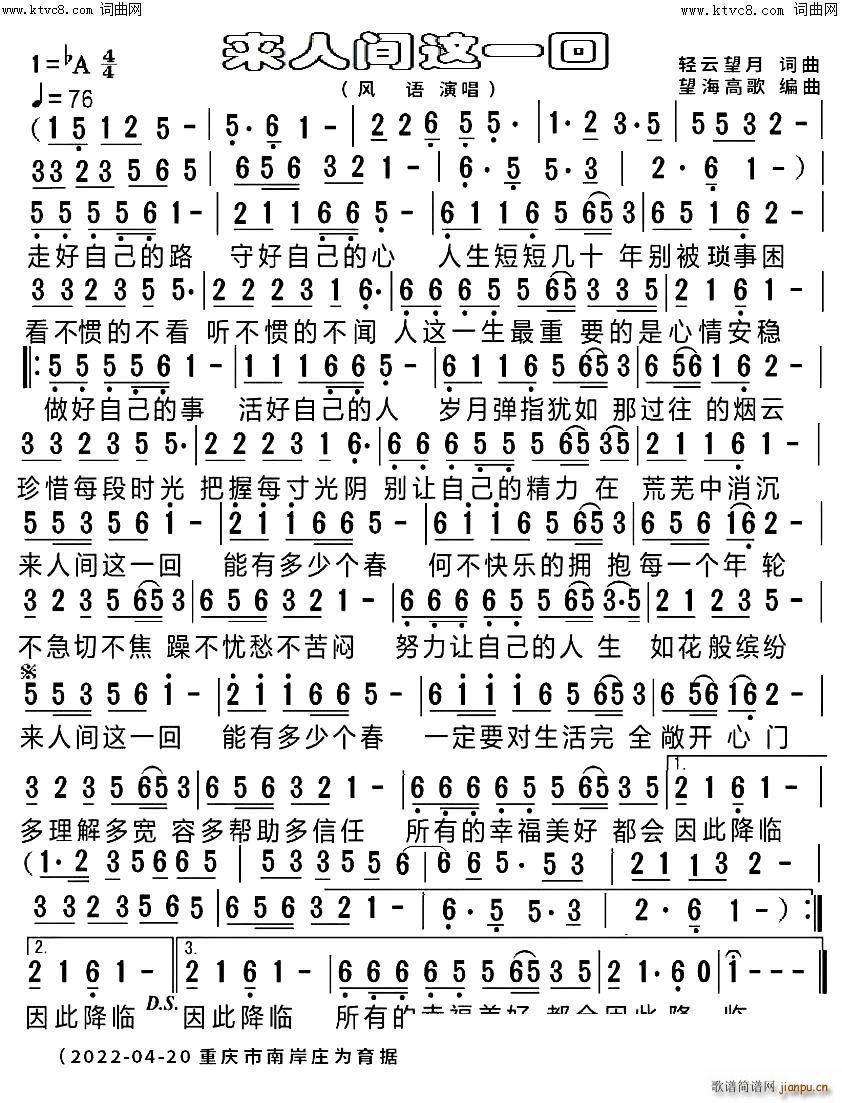 www.ktvc8.com 词曲网
www.ktvc8.com 词曲网
来人间这一回
1=♭A 4/4
轻云望月 词曲
(风 语 演唱)
望海高歌 编曲
♩=76
(1 5 1 2 5 - | 5· 6 1 - | 2 2 6 5 5· | 1· 2 3· 5 | 5 5 3 2 - |
3 3 2 3 5 6 5 | 6 5 6 3 2 1 - | 6· 5 5· 3 | 2· 6 1 - ) |
5 5 5 5 6 1 - | 2 1 1 6 6 5 - | 6 1 1 6 5 6 5 3 | 6 5 1 6 2 - |
走好自己的路 守好自己的心 人生短短几十 年别被琐事困
3 3 2 3 5 5· | 2 2 2 3 1 6· | 6 6 6 5 5 6 5 3 3 5 | 2 1 6 1 - |
看不惯的不看 听不惯的不闻 人这一生最重 要的是心情安稳
‖: 5 5 5 5 6 1 - | 1 1 1 6 6 5 - | 6 1 1 6 5 6 5 3 | 6 5 6 1 6 2 - |
做好自己的事 活好自己的人 岁月弹指犹如 那过往 的烟云
3 3 2 3 5 5· | 2 2 2 3 1 6· | 6 6 6 5 5 5 6 5 3 5 | 2 1 1 6 1 - |
珍惜每段时光 把握每寸光阴 别让自己的精力 在 荒芜中消沉
5 5 3 5 6 i - | 2 i i 6 6 5 - | 6 i i 6 5 6 5 3 | 6 5 6 i 6 2 - |
来人间这一回 能有多少个春 何不快乐的拥 抱每一个年 轮
3 2 3 5 6 5 3 | 6 5 6 3 2 1 - | 6 6 6 6 5 5 6 5 3· 5 | 2 1 2 3 5 - |
不急切不焦 躁不忧愁不苦闷 努力让自己的人 生 如花般缤纷
5 5 3 5 6 i - | 2 i i 6 6 5 - | 6 i i 6 5 6 5 3 | 6 5 6 i 6 2 - |
来人间这一回 能有多少个春 一定要对生活完 全敞开 心 门
3 2 3 5 6 5 3 | 6 5 6 3 2 1 - | 6 6 6 6 5 5 6 5 3 5 | 1. 2 1 6 1 - |
多理解多宽 容多帮助多信任 所有的幸福美好 都会 因此降临
(1· 2 3 5 6 6 5 | 5 3 3 5 5 6 | 6 6 5· 5 3 | 2 1 1 3 2 - |
3 3 2 3 5 6 5 | 6 5 6 3 2 1 - | 6· 5 5· 3 | 2· 6 1 - ) :‖
2. 2 1 6 1 - ‖ 3. 2 1 6 1 - | 6 6 6 6 5 5 6 5 3 5 | 2 1· 6 0 | 1 - - - ‖
因此降临 D.S. 因此降临 所有的幸福美好 都会因此降 临
(2022-04-20 重庆市南岸庄为育据
歌谱简谱网 jianpu.cn